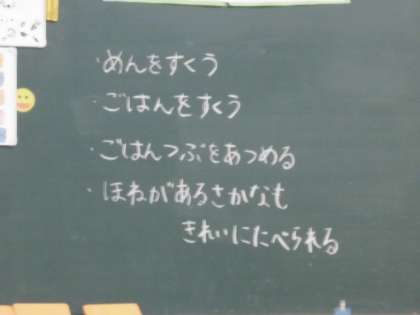 ・めんをすくう
・ごはんをすくう
・ごはんつぶをあつめる
・ほねがあるさかなも
きれいにたべられる